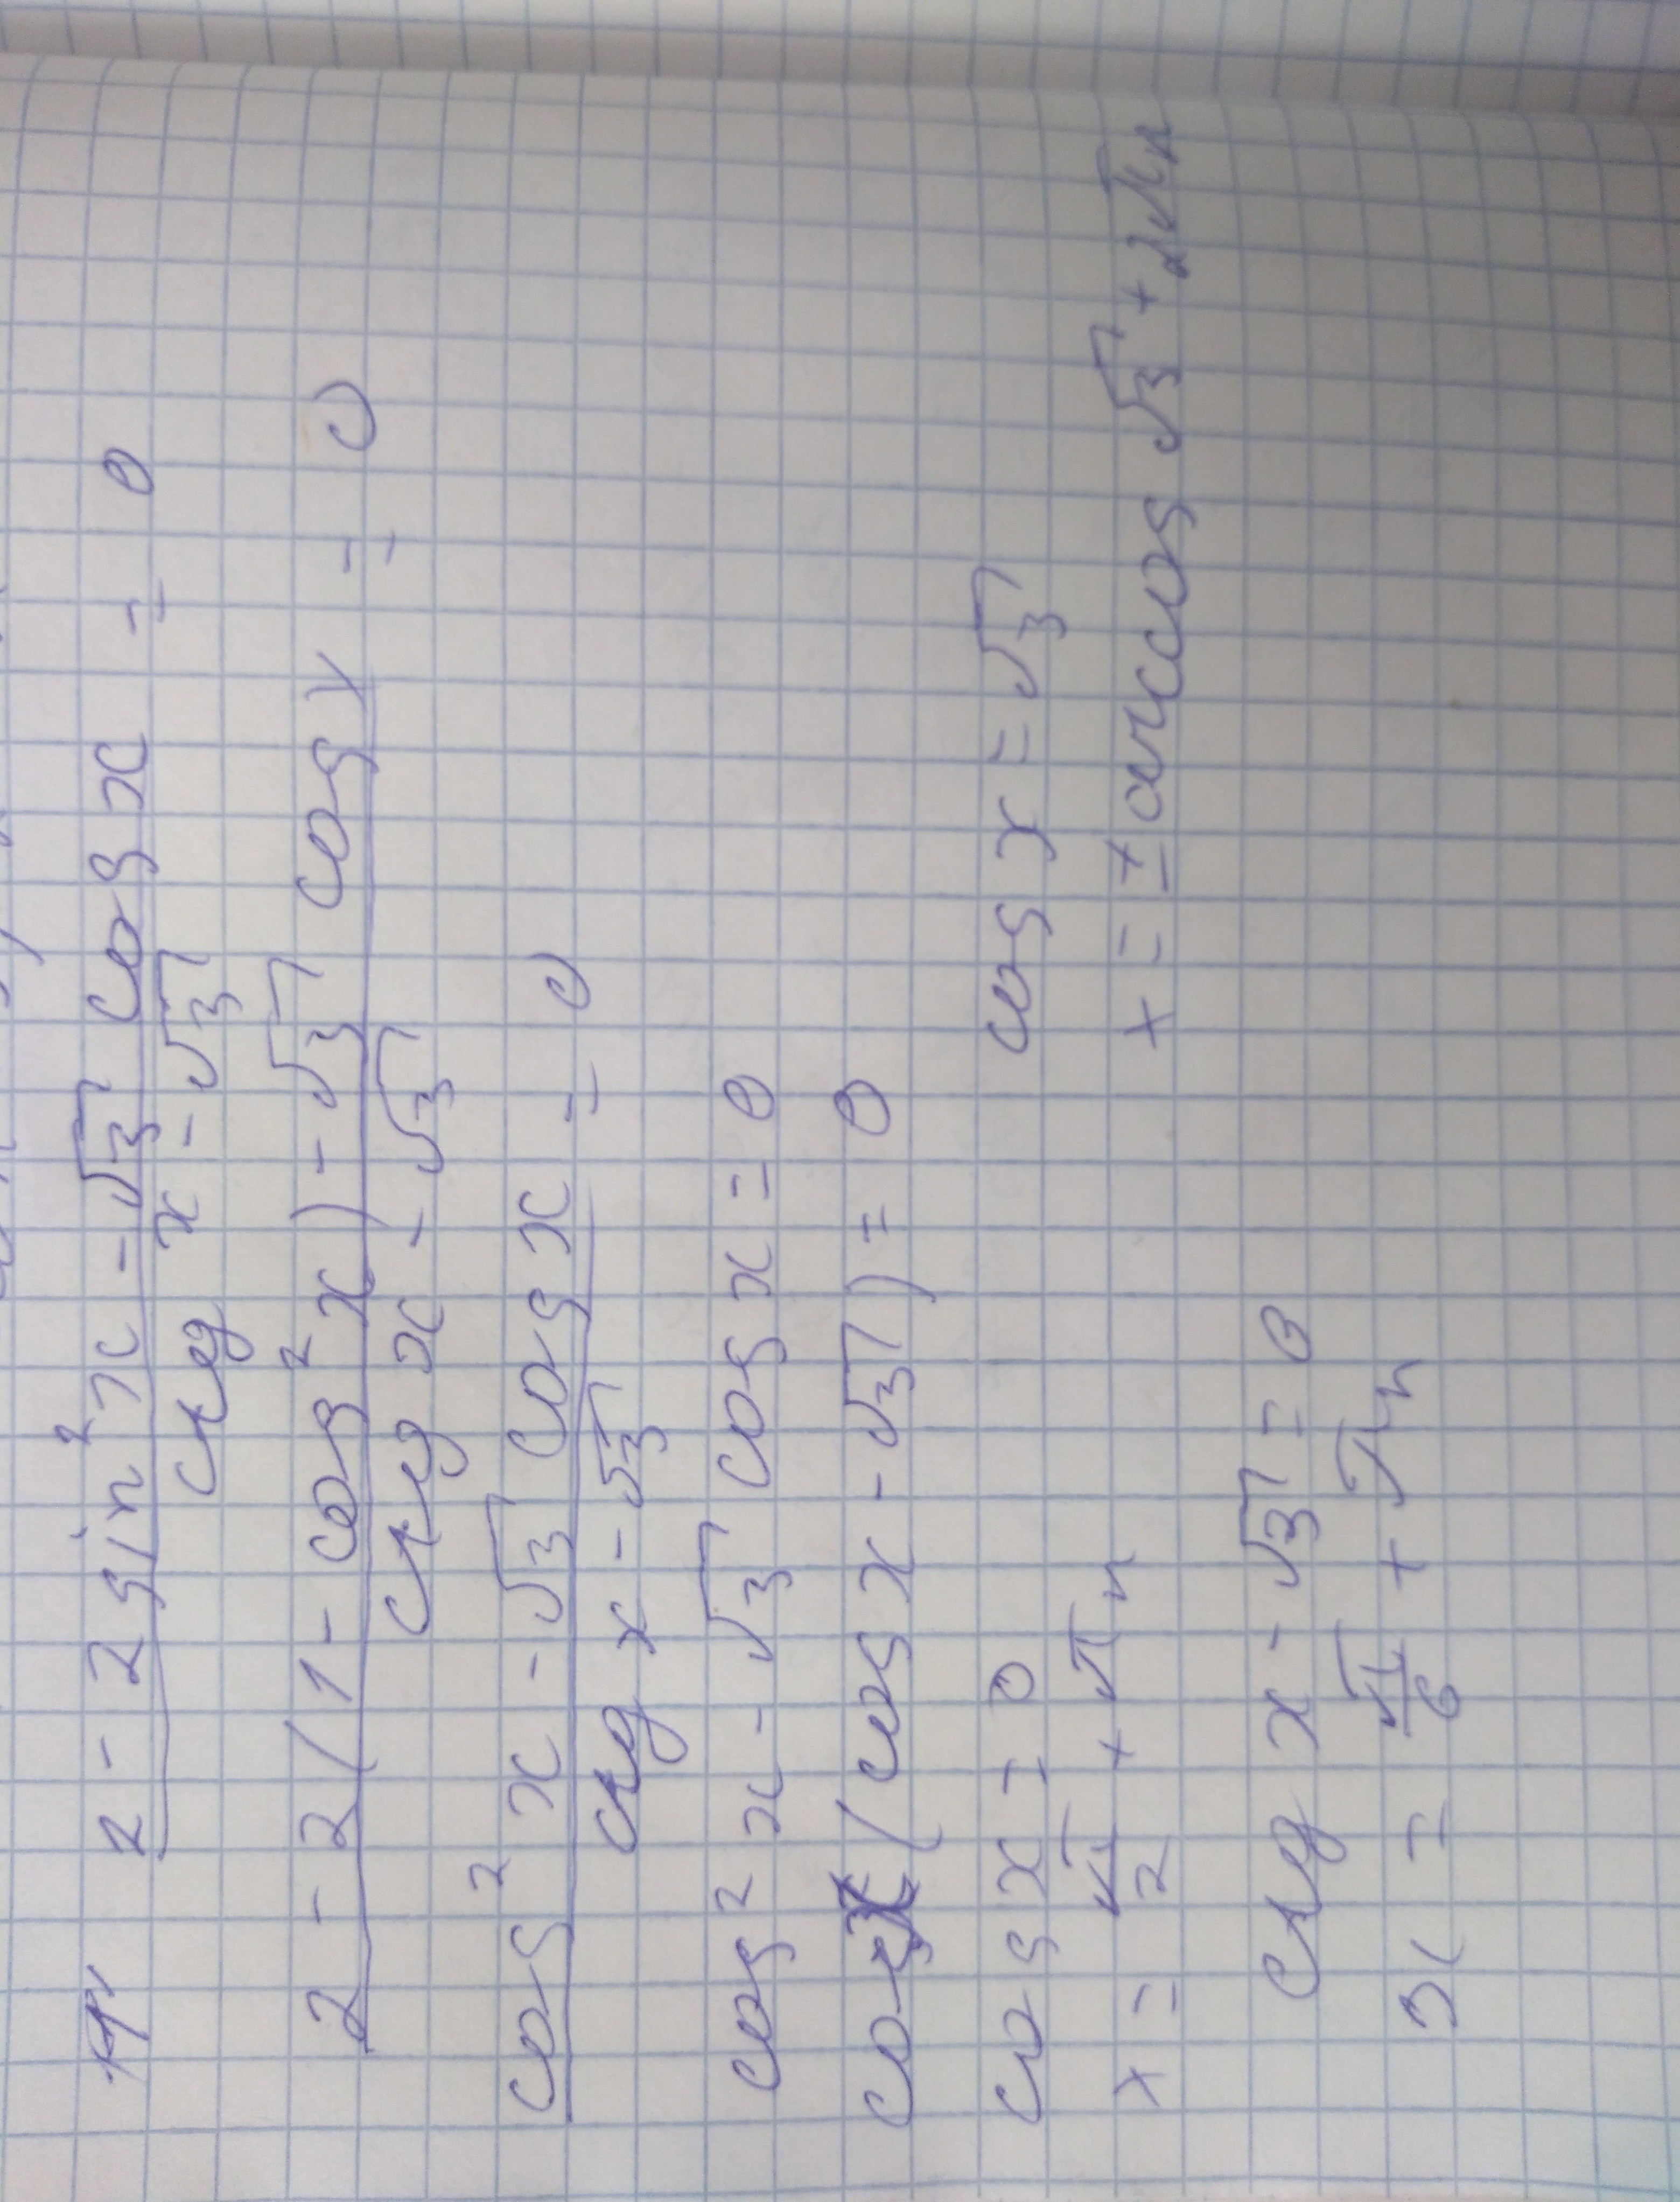 2 - 2 sin² x - √3 cos x = 0
ctg x - √3
2 - 2(1 - cos² x) - √3 cos x = 0
ctg x - √3
cos² x - √3 cos x = 0
ctg x - √3
cos² x - √3 cos x = 0
cos x (cos x - √3) = 0
cos x = 0 cos x = √3
x = π/2 + πn x = ± arccos √3 + 2πn
ctg x - √3 = 0
x = π/6 + πn